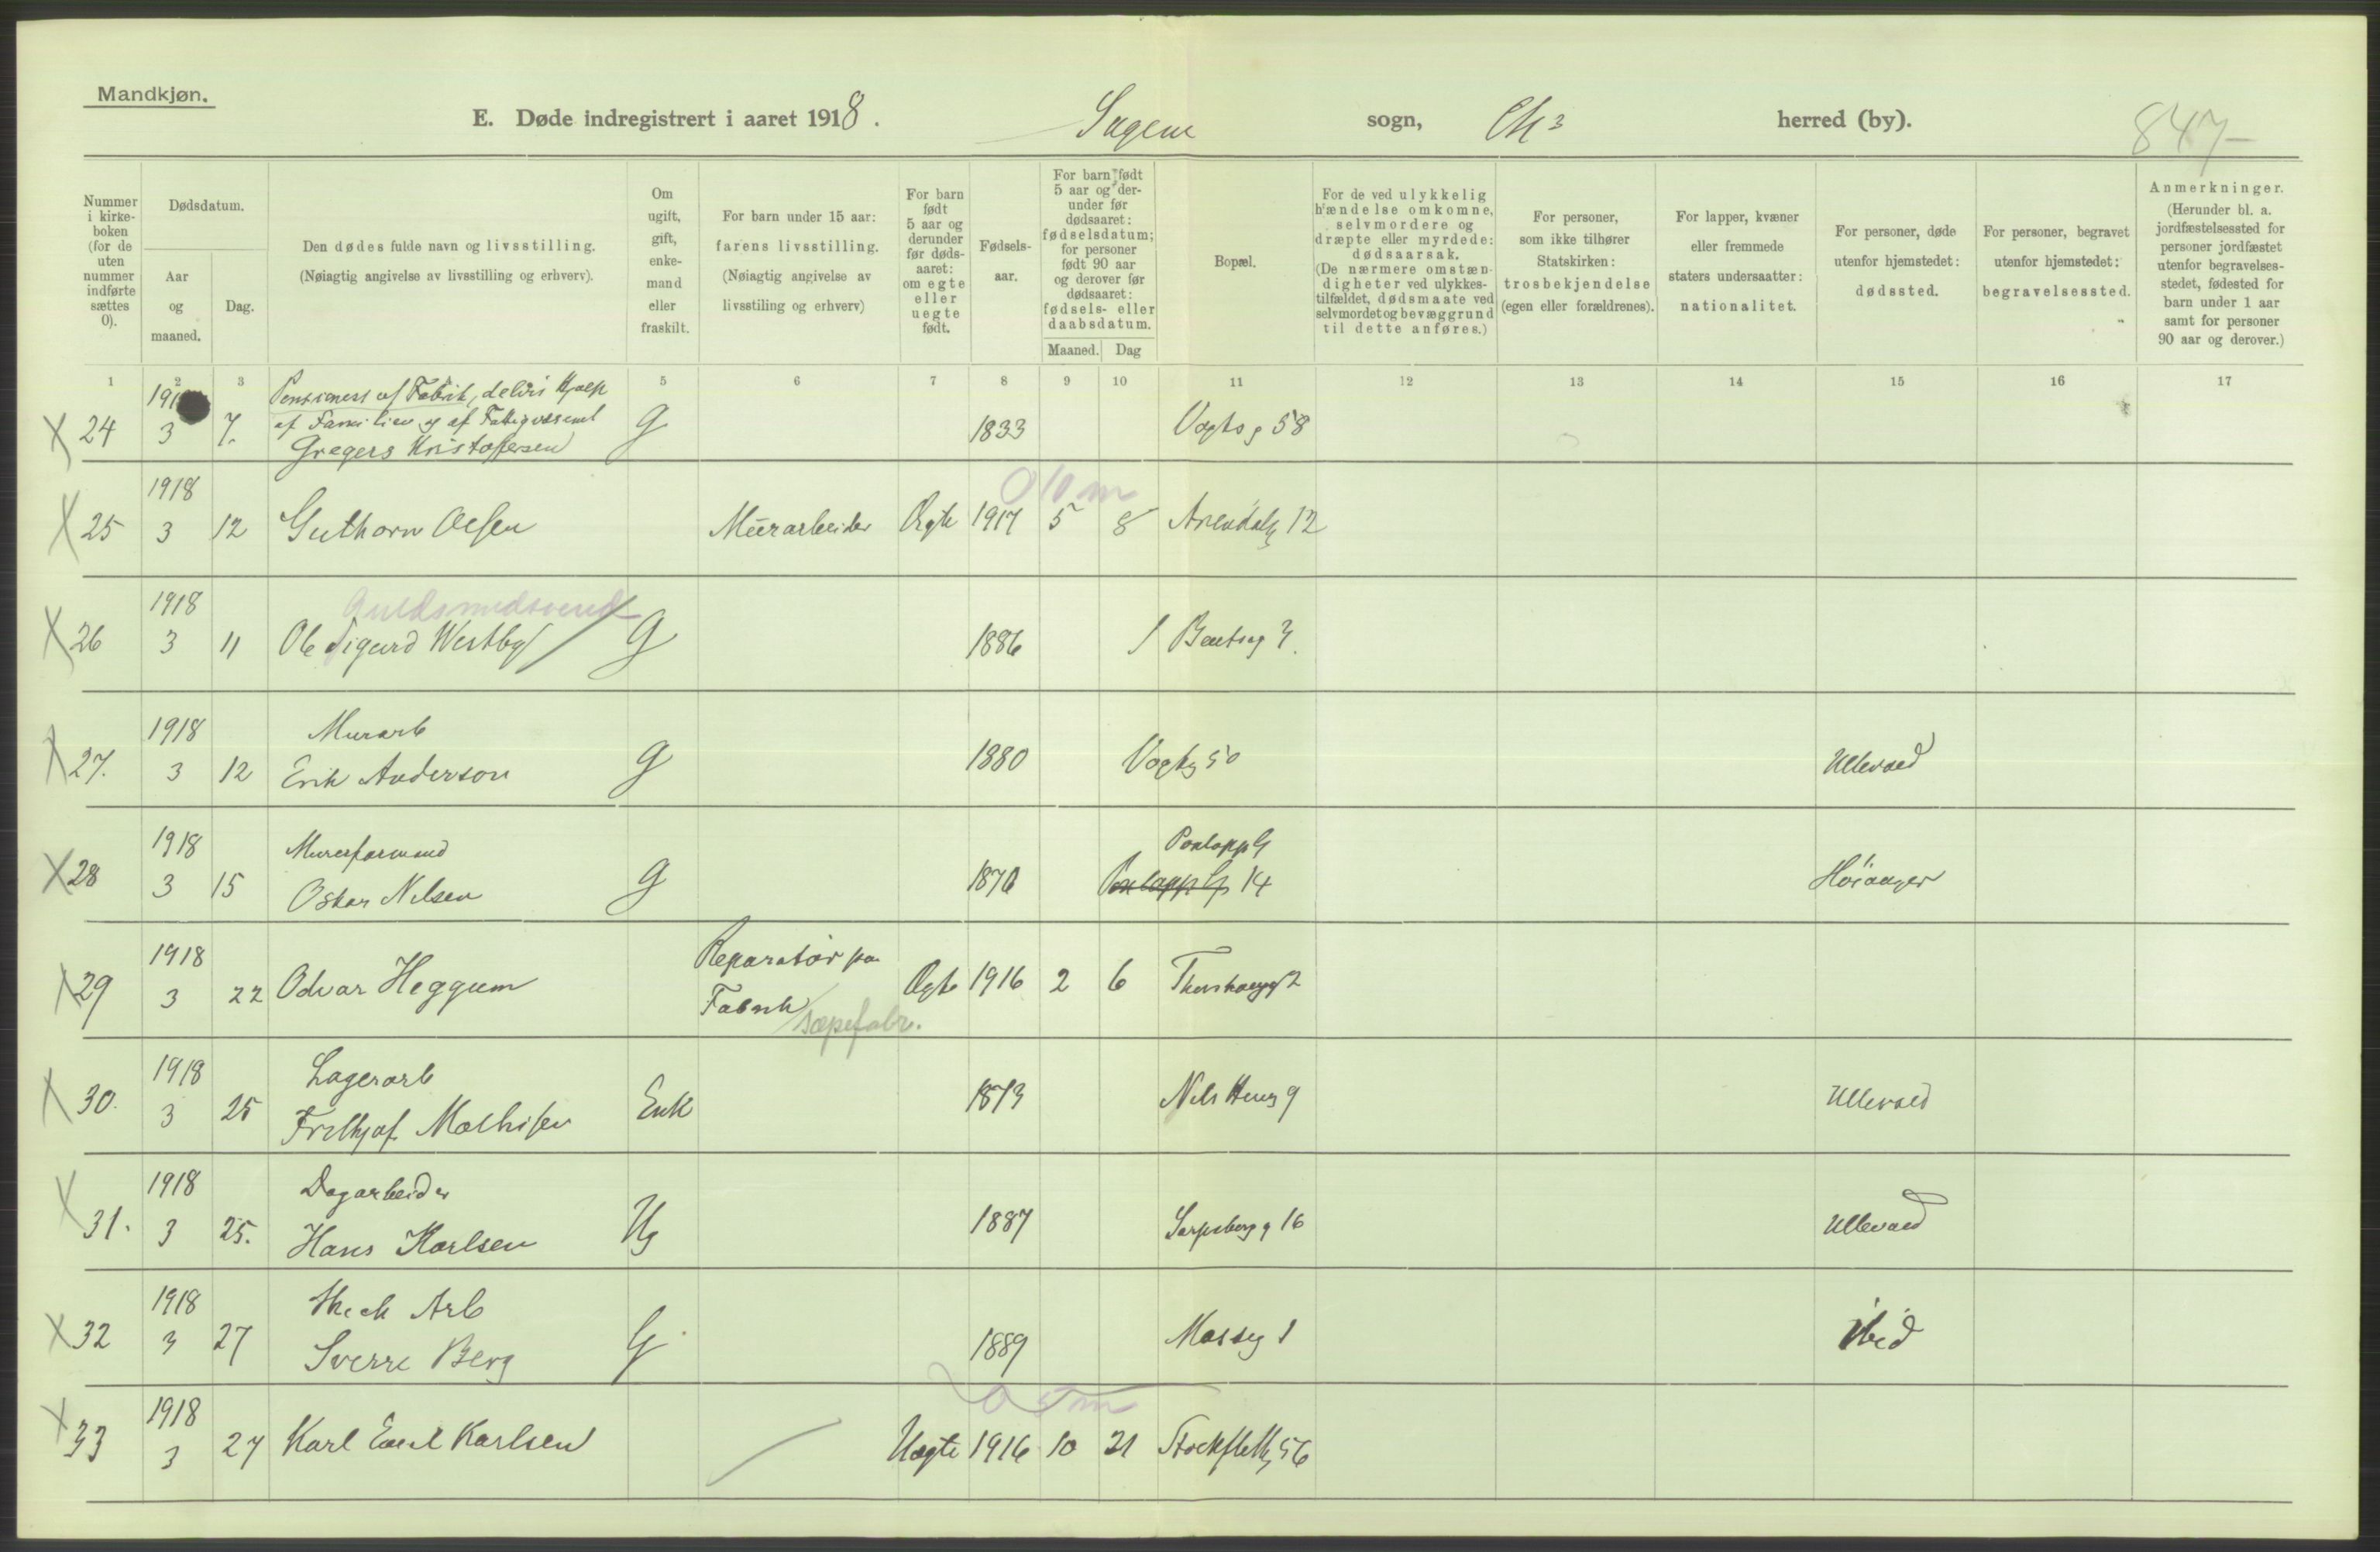 Mandkjøn.
E. Døde indregistrert i aaret 1918. Sagene sogn, Chr herred (by). 847-
Nummer i kirkeboken (for de uten nummer indførte sættes 0).
Dødsdatum.
Aar og maaned.
Dag.
Den dødes fulde navn og livsstilling.
(Nøiagtig angivelse av livsstilling og erhverv).
Om ugift, gift, enkemand eller fraskilt.
For barn under 15 aar:
farens livsstilling.
(Nøiagtig angivelse av livsstiling og erhverv)
For barn født 5 aar og derunder før dødsaaret: om egte eller uegte født.
Fødselsaar.
For barn født 5 aar og derunder før dødsaaret: fødselsdatum; for personer født 90 aar og derover før dødsaaret: fødsels- eller daabsdatum.
Maaned. Dag
Bopæl.
For de ved ulykkelig hændelse omkomne, selvmordere og dræpte eller myrdede: dødsaarsak. (De nærmere omstændigheter ved ulykkestilfældet, dødsmaate ved selvmordet og bevæggrund til dette anføres.)
For personer, som ikke tilhører Statskirken: trosbekjendelse (egen eller forældrenes).
For lapper, kvæner eller fremmede staters undersaatter: nationalitet.
For personer, døde utenfor hjemstedet: dødssted.
For personer, begravet utenfor hjemstedet: begravelsessted.
Anmerkninger. (Herunder bl. a. jordfæstelsessted for personer jordfæstet utenfor begravelsesstedet, fødested for barn under 1 aar samt for personer 90 aar og derover.)
1 2 3 5 6 7 8 9 10 11 12 13 14 15 16 17
Pensioness af Fabrik, delvis Hjælp
af Familien og af Fattigvæsenet
X 24 191 3 7. Gregers Kristoffersen G 1833 Vogtsg 58
0 10 m
X 25 1918 3 12 Guthorm Olsen Murarbeider Ægte 1917 5 8 Arendalsg 12
Guldsmedsvend
X 26 1918 3 11 Ole Sigurd Westby G 1886 Bentseg 7.
Murarb
X 27. 1918 3 12 Erik Anderson G 1880 Vogtsg 50 Ullevaal
Murerformand Poulapp G
X 28 1918 3 15 Oskar Nilsen G 1876 14 Høianger
Reparatør paa
X 29 1918 3 22 Odvar Heggum Fabrik Ægte 1916 2 6 Thorshaugg 2
sæpefabr.
Lagerarb
X 30. 1918 3 25 Fridtjof Mathisen Enk 1873 Nils Huusg 9 Ullevaal
Dagarbeider
X 31. 1918 3 25. Hans Karlsen Ug 1887 Sarpsborg g 16 Ullevaal
Mek Arb
X 32 1918 3 27 Sverre Berg G 1889 Mosseg 1 ibid
0 5 m
X 33 1918 3 27 Karl Emil Karlsen Uægte 1916 10 21 Stockflethsg 56